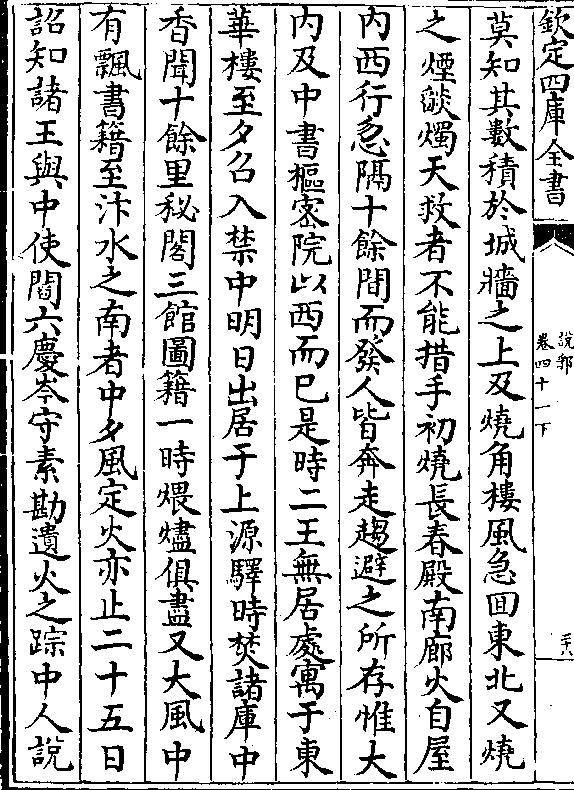 欽定四庫全書
說郛
卷四十一下
二十八
莫知其數積於城牆之上及燒角樓風急囬東北又燒
之煙燄燭天救者不能措手初燒長春殿南廊火自屋
内西行急隔十餘間而發人皆奔走趨避之所存惟大
内及中書樞宻院以西而已是時二王無居處寓于東
華樓至夕召入禁中明日出居于上源驛時焚諸庫中
香聞十餘里秘閣三館圖籍一時煨燼俱盡又大風中
有飄書籍至汴水之南者中夕風定火亦止二十五日
詔知諸王與中使閻六慶岑守素勘遺火之踪中人說